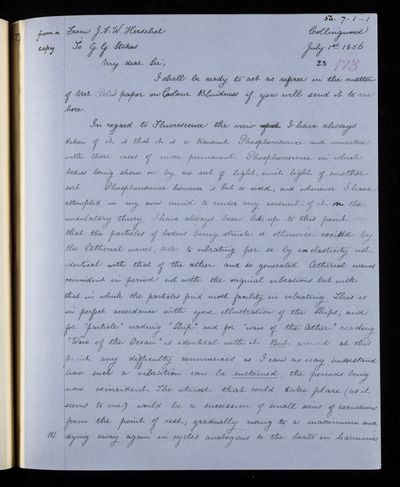 53. 7. 1. 1
from a copy From J. F. W. Herschel Collingwood
To G. G. Stokes July 1st 1856
My dear Sir, 23 173
I shall be ready to act as referee in the matter
of Mr Pole's paper on Colour Blindness if you will send it to me
here
In regard to Fluorescence the view I have always
taken of it is that it is a transient Phosphorescence and connected
with those cases of more permanent Phosphorescence in which
bodies being shone on by one sort of light, emit light of another
sort. Phosphorescence however is but a word, and whenever I have
attempted in my own mind to render any account of it on the
undulatory theory I have always been led up to this point —
that the particles of bodies being struck or otherwise excited by
the Aethereal waves, take to vibrating per se by an elasticity not
identical with that of the ether and so generated Aethereal waves
coincident in period not with the original vibrations but with
that in which the particles find most facility in vibrating. This is
in perfect accordance with your illustration of the Ships, and
for "particle" reading "Ship" and for "wave of the Aether" reading
"Wave of the Ocean" is identical with it. But arrived at this
point my difficulty commences as I can no way understand
how such a vibration can be sustained, the periods being
non coincident. The utmost that could take place (as it
seems to me) would be a succession of small series of excursions
from the point of rest, gradually rising to a maximum and
dying away again in cycles analogous to the beats in harmonics